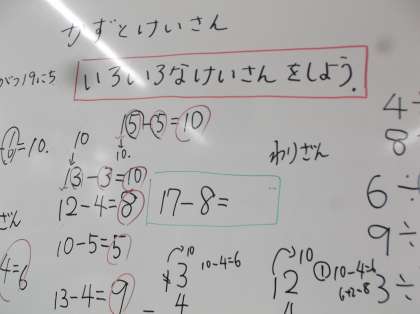 かずとけいさん
がつ19にち
いろいろなけいさんをしよう.
15-5=10
10.
=10.
10
13-3=10
12-4=8
17-8=
わりざん
10-5=5
4=6
13-4=9
10
13
10-4=6
4
10
12
①10-4=6
6+2=8
4
8
6÷
9÷
3÷